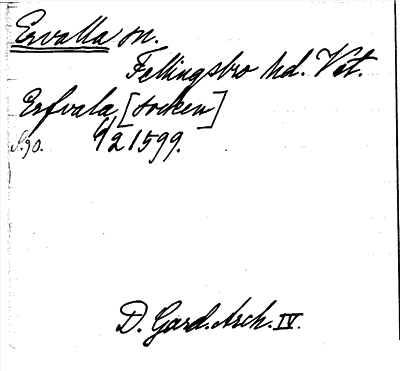 Ervalla sn.
Fellingsbro hd. Vst.
Erfvala, [socken]
S. 90. 9/2 1599.
D. Gard. Arch. IV.